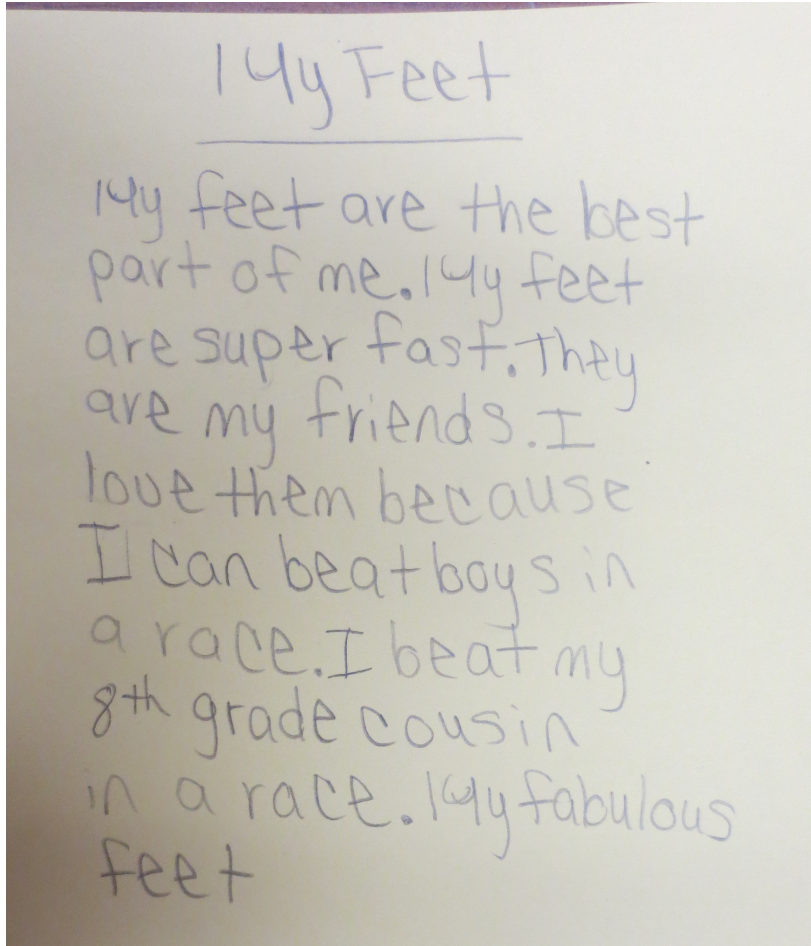 My Feet
My feet are the best
part of me. My feet
are super fast. They
are my friends. I
love them because
I can beat boys in
a race. I beat my
8th grade cousin
in a race. My fabulous
feet